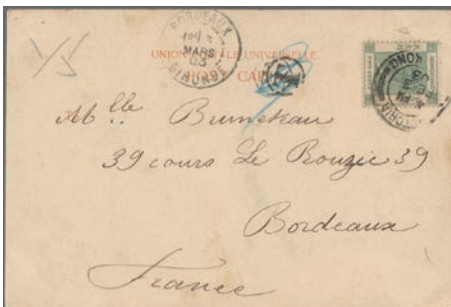 BORDEAUX
MARS
03
GIRONDE
UNION POSTALE UNIVERSELLE
POST CARD
VICTORIA
HONG KONG
Mlle Bruneteau
39 cours Le Rouzic 39
Bordeaux
France